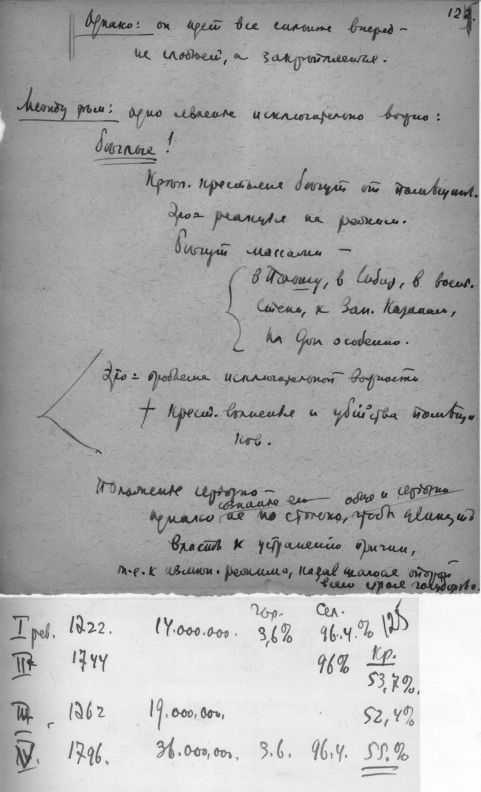 125.
Однако: он идет все сильнее вперед –
не слабеет, а закрепляется.
Между тем: одно явление исключительно важно:
Беглые!
Креп. крестьяне бегут от помещик.
Это = реакция на режим.
Бегут массами –
в Польшу, в Сибир, в вост.
степи, к Зап. Казакам,
на Дон особенно.
Это = проблема исключительной важности
+ Крест. волнения и убийства помещи
ков.
Положение серьезно –
сознание его обще и серьезно
Однако не на столько, чтобы двинуть
власть к устранению причин,
т.-е. к измен. режима,
всего строя государства.
Гор. Сел.
I рев. 1722. 14.000.000. 3,6% 96.4.% 125
II 1744 96% Кр.
53,7%.
III 1762 19.000.000. 52,4%
IV. 1796. 36.000.000. 3.6. 96.4. 55.%